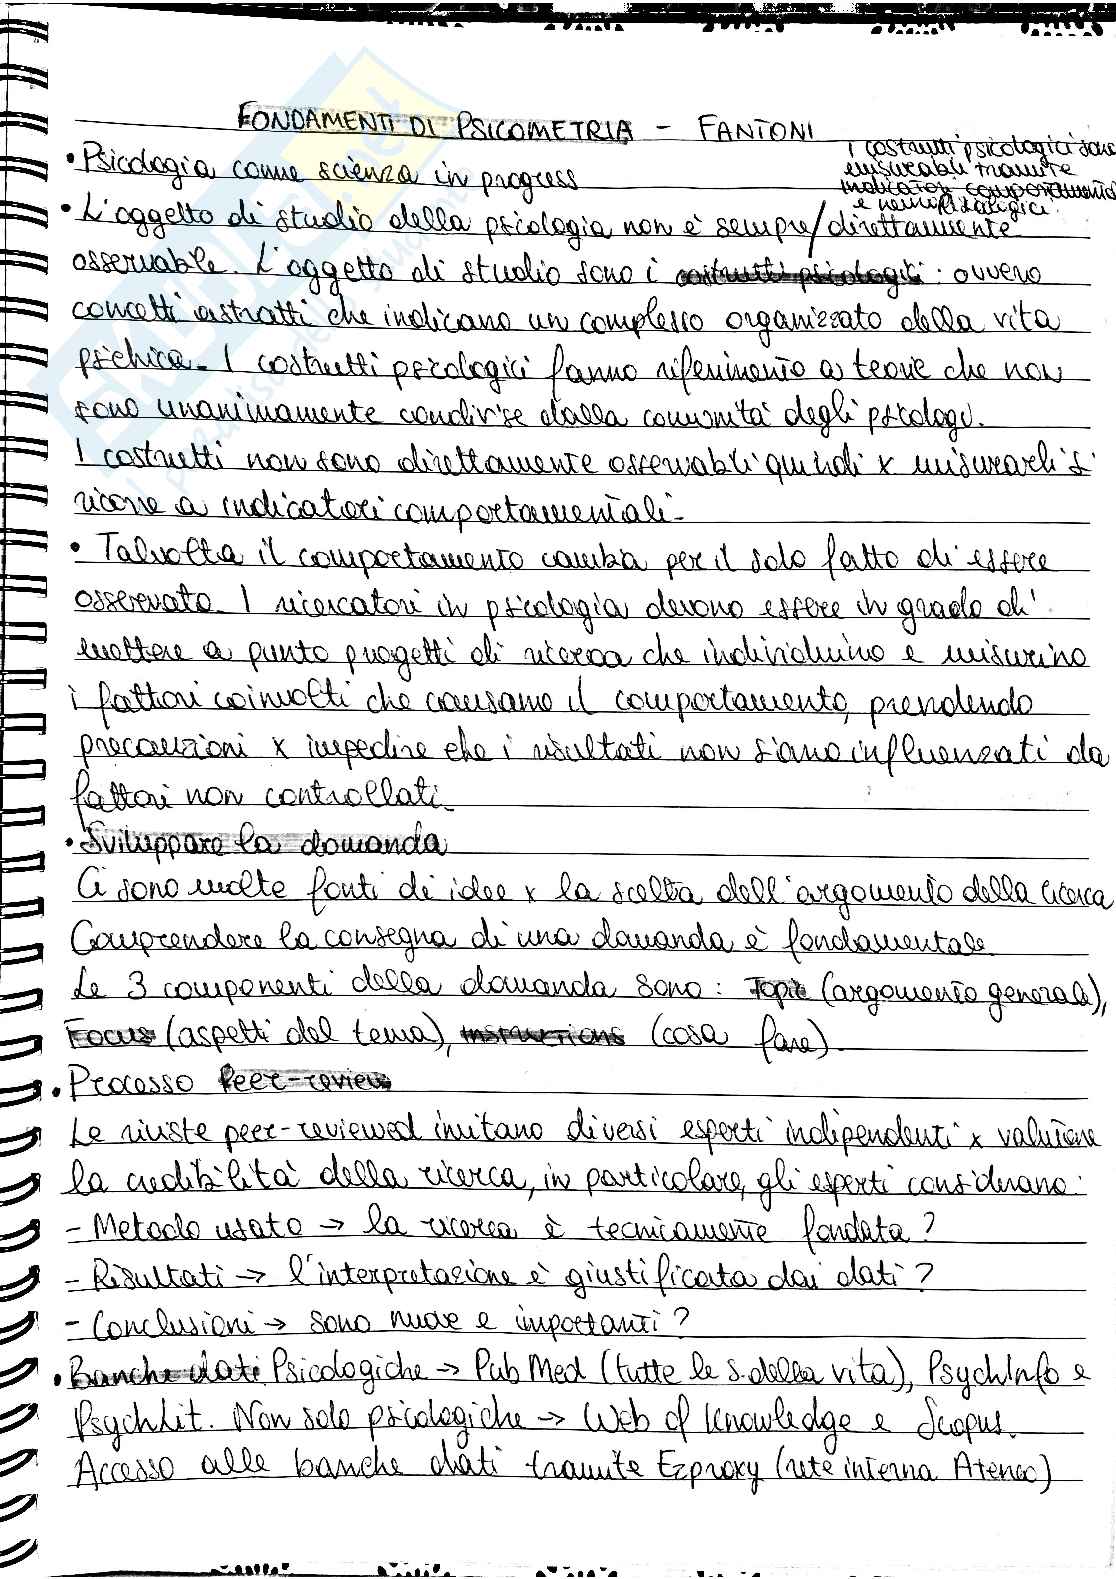 FONDAMENTI DI PSICOMETRIA - FANTONI
i costrutti psicologici sono
misurabili tramite
indicatori comportamentali
e neurofisiologici.
• Psicologia come scienza in progress
• L'oggetto di studio della psicologia non è sempre/direttamente
osservabile. L'oggetto di studio sono i costrutti psicologici: ovvero
concetti astratti che indicano un complesso organizzato della vita
psichica. I costrutti psicologici fanno riferimento a teorie che non
sono unanimamente condivise dalla comunità degli psicologi.
I costrutti non sono direttamente osservabili quindi x misurarli si
ricorre a indicatori comportamentali.
• Talvolta il comportamento cambia per il solo fatto di essere
osservato. I ricercatori in psicologia devono essere in grado di
mettere a punto progetti di ricerca che individuino e misurino
i fattori coinvolti che causano il comportamento, prendendo
precauzioni x impedire che i risultati non siano influenzati da
fattori non controllati.
• Sviluppare la domanda
Ci sono molte fonti di idee x la scelta dell'argomento della ricerca
Comprendere la consegna di una domanda è fondamentale.
Le 3 componenti della domanda sono: Topic (argomento generale),
Focus (aspetti del tema), Instructions (cosa fare).
• Processo Peer-review
Le riviste peer-reviewed invitano diversi esperti indipendenti x valutare
la credibilità della ricerca, in particolare, gli esperti considerano:
- Metodo usato → la ricerca è tecnicamente fondata?
- Risultati → l'interpretazione è giustificata dai dati?
- Conclusioni → sono nuove e importanti?
• Banche dati Psicologiche → PubMed (tutte le s. della vita), PsychInfo e
PsychLit. Non solo psicologiche → Web of Knowledge e Scopus.
Accesso alle banche dati tramite Ezproxy (rete interna Ateneo)